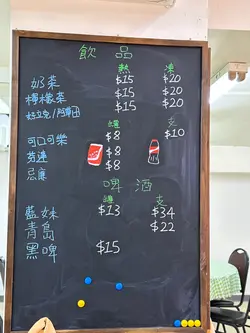 飲品
熱 凍
奶茶 $15 $20
檸檬茶 $15 $20
好立克/阿華田 $15 $20
罐 支
可口可樂 $8 $10
芬達 $8
忌廉 $8
啤酒
罐 支
藍妹 $13 $34
青島 $22
黑啤 $15